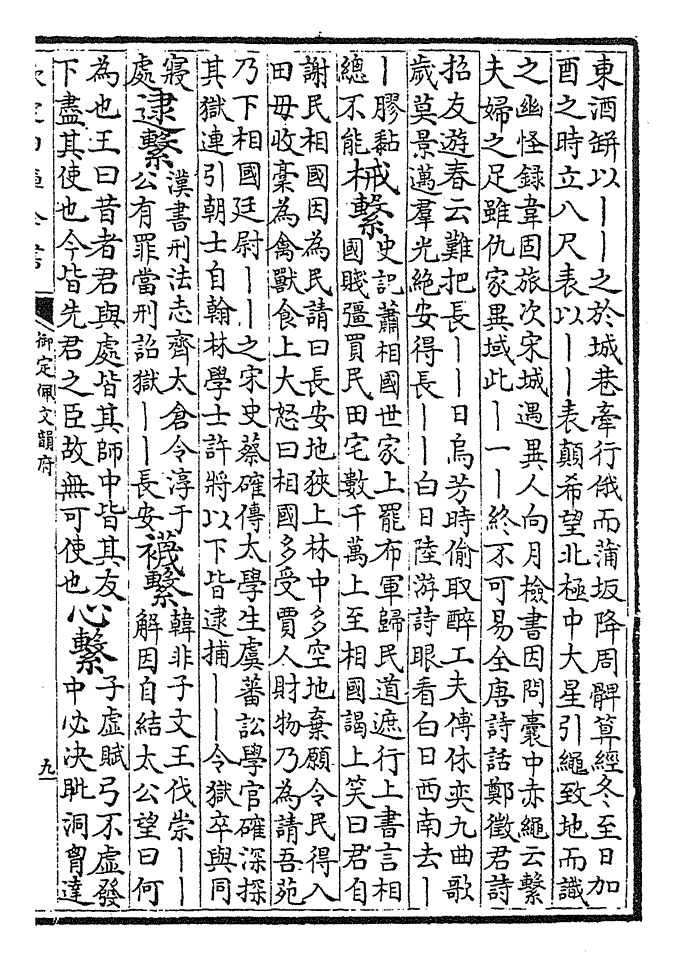 東酒缾以丨丨之於城巷牽行俄而蒲坂降周髀算經冬至日加
酉之時立八尺表以丨丨表顛希望北極中大星引繩致地而識
之幽怪録韋固旅次宋城遇異人向月檢書因問囊中赤繩云繫
夫婦之足雖仇家異域此丨一丨終不可易全唐詩話鄭徵君詩
招友遊春云難把長丨丨日烏芳時偷取醉工夫傅休奕九曲歌
歲莫景邁羣光絶安得長丨丨白日陸游詩眼看白日西南去丨
丨膠黏
總不能
械繫
史記蕭相國世家上罷布軍歸民道遮行上書言相
國賤彊買民田宅數千萬上至相國謁上笑曰君自
謝民相國因為民請曰長安地狹上林中多空地棄願令民得入
田毋收稾為禽獸食上大怒曰相國多受賈人財物乃為請吾苑
乃下相國廷尉丨丨之宋史蔡確傳太學生虞蕃訟學官確深探
其獄連引朝士自翰林學士許將以下皆逮捕丨丨令獄卒與同
寢
處
逮繫
漢書刑法志齊太倉令淳于
公有罪當刑詔獄丨丨長安
襪繫
韓非子文王伐崇丨丨
解因自結太公望曰何
為也王曰昔者君與處皆其師中皆其友
下盡其使也今皆先君之臣故無可使也
心繫
子虛賦弓不虛發
中必決眦洞胷達
御定佩文韻府
九